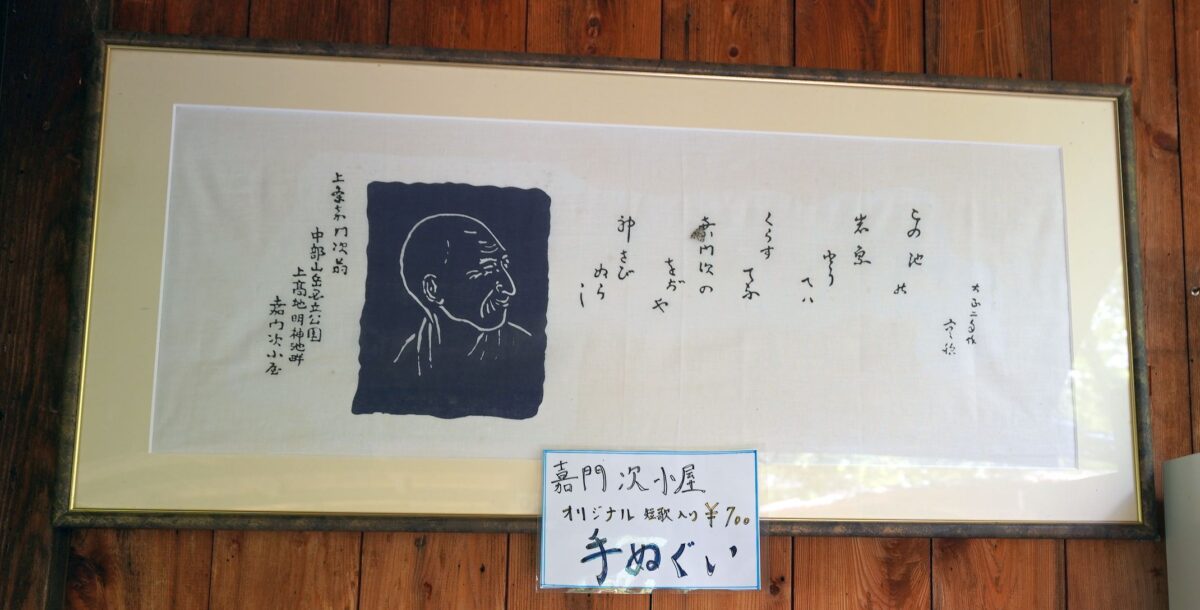 大正二年
この池の
岩魚
とり
てハ
くらす
てふ
嘉門次の
をぢや
神さび
ぬらし
上條嘉門次翁
中部山岳国立公園
上高地明神池畔
嘉門次小屋
嘉門次小屋
オリジナル 短歌入り ¥700
手ぬぐい